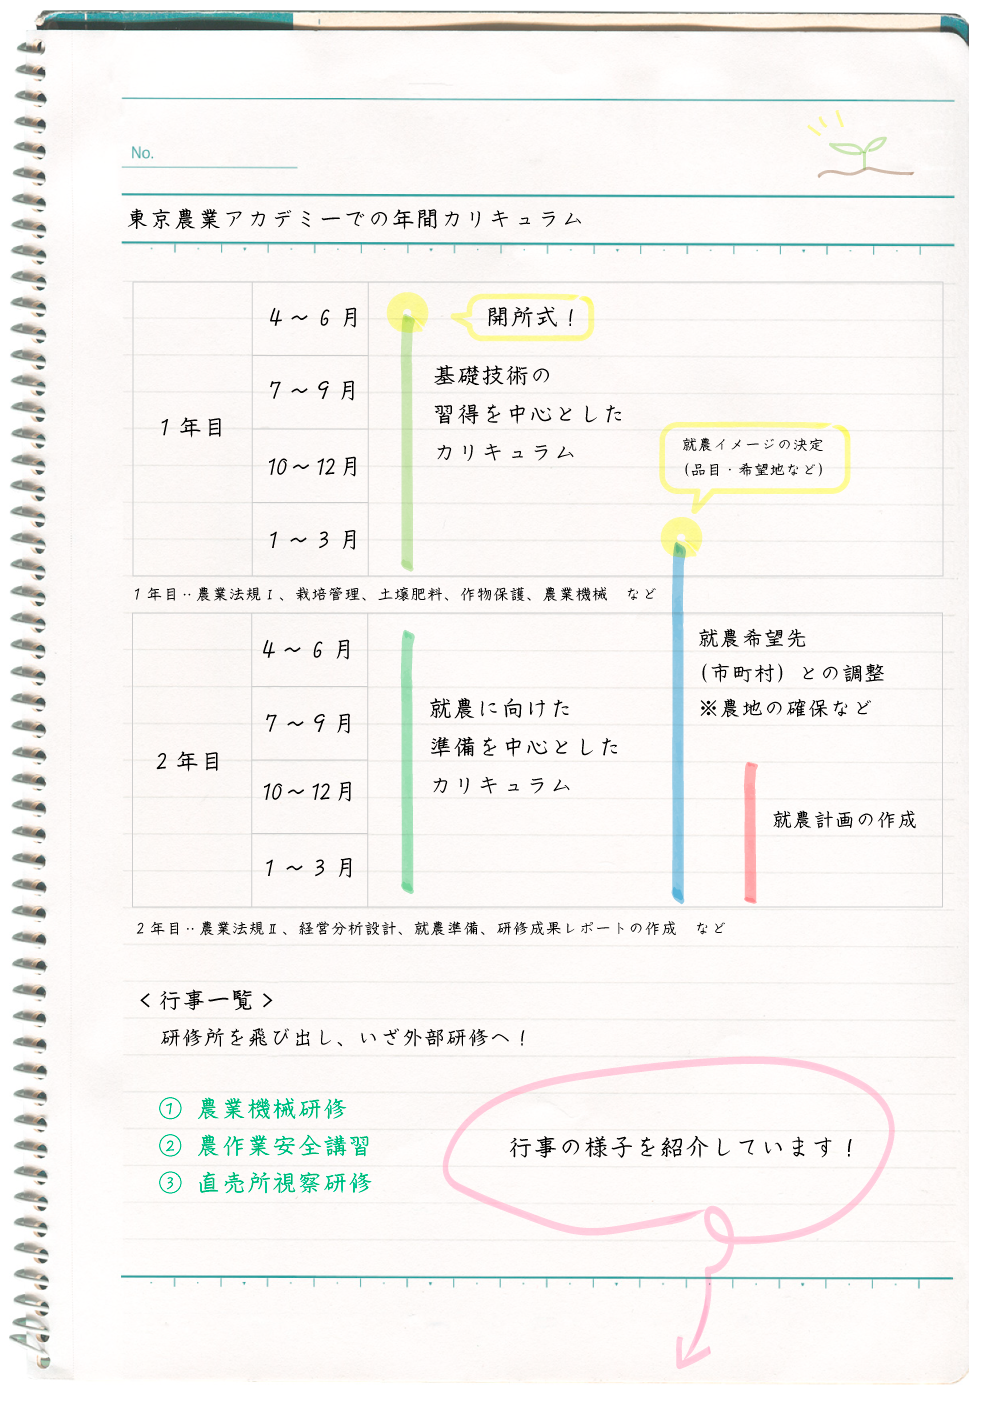 No.
東京農業アカデミーでの年間カリキュラム
1年目
4～6月
開所式！
7～9月
基礎技術の
習得を中心とした
カリキュラム
10～12月
就農イメージの決定
(品目・希望地など)
1～3月
1年目‥農業法規Ⅰ、栽培管理、土壌肥料、作物保護、農業機械　など
2年目
4～6月
就農希望先
(市町村)との調整
※農地の確保など
7～9月
就農に向けた
準備を中心とした
カリキュラム
10～12月
就農計画の作成
1～3月
2年目‥農業法規Ⅱ、経営分析設計、就農準備、研修成果レポートの作成　など
＜行事一覧＞
研修所を飛び出し、いざ外部研修へ！
① 農業機械研修
② 農作業安全講習
③ 直売所視察研修
行事の様子を紹介しています！